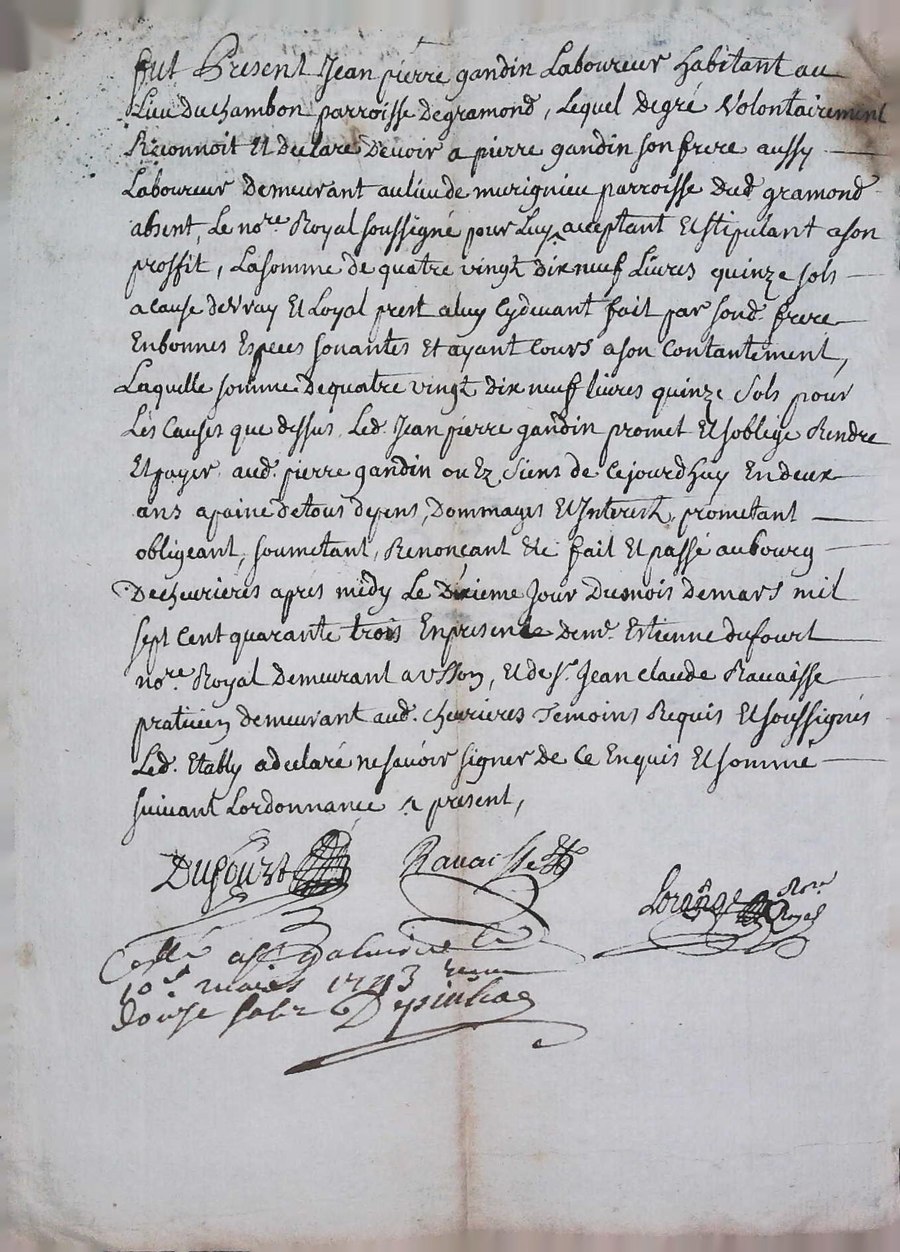 fut Present Jean pierre gandin Laboureur habitant au
Lieu du chambon parroisse degramond, Lequel degré volontairement
Reconnoit Et declare devoir a pierre gandin son frere aussy
Laboureur demeurant aulieude murignieu parroisse dud. gramond
absent, Le no.re Royal soussigné pour Luy acceptant Et stipulant a son
proffit, La somme de quatre vingt dix neuf Livres quinze sols
a cause de vray Et Loyal prest a luy cydevant fait par sond. frere
En bonnes Especes sonantes Et ayant cours a son contantement,
Laquelle somme de quatre vingt dix neuf livres quinze sols pour
Les causes que dessus, Led. Jean pierre gandin promet Et soblige Rendre
Et payer aud. pierre gandin ou Ez siens de cejourdhuy En deux
ans a paine de tous depens, Dommages Et Interests, prometant
obligeant, soumetant, Renonçant Etc fait Et passé au bourg
De chevriéres aprés midy Le dixieme Jour dumois demars mil
sept cent quarante trois En presence de m.e Estienne dufourt
no.re Royal demeurant a usson, Et de s.r Jean claude Ravaisse
praticien demeurant aud. chevriéres Temoins Requis Et soussignés
Led. Etably a declaré ne savoir signer de ce Enquis Et sommé
suivant Lordonnance a present,
Dufourt Ravaisse
No.re
Royal
a st galmier le
10.e mars 1743
douse sols